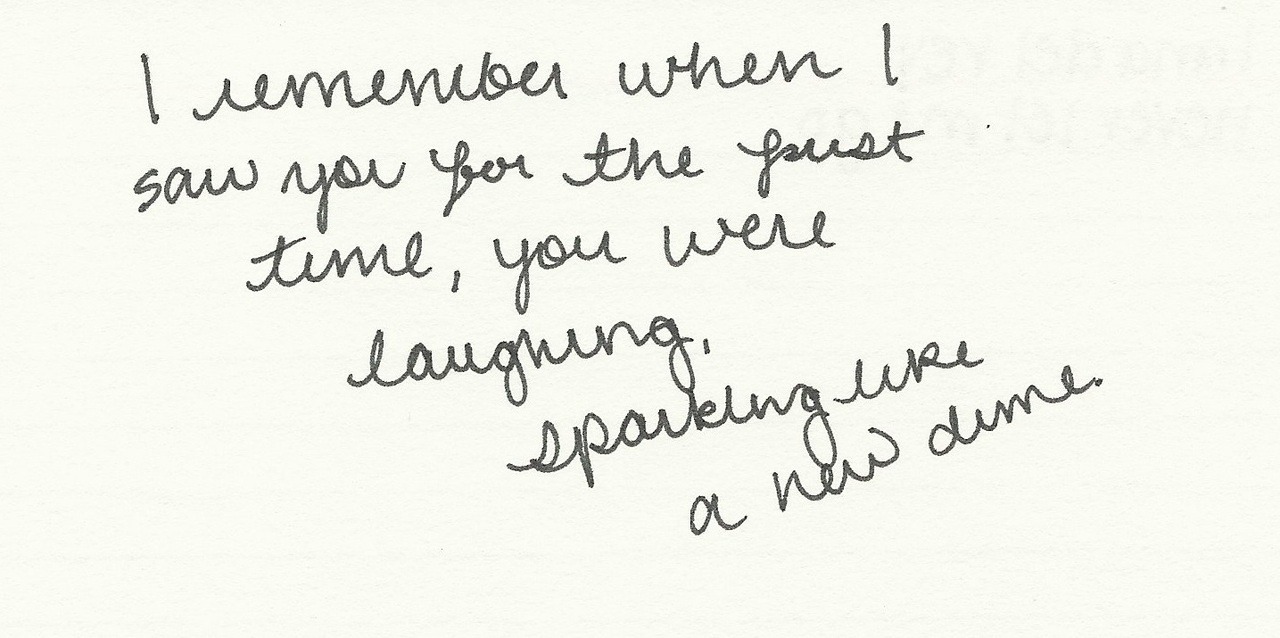 I remember when I
saw you for the first
time, you were
laughing,
sparkling like
a new dime.